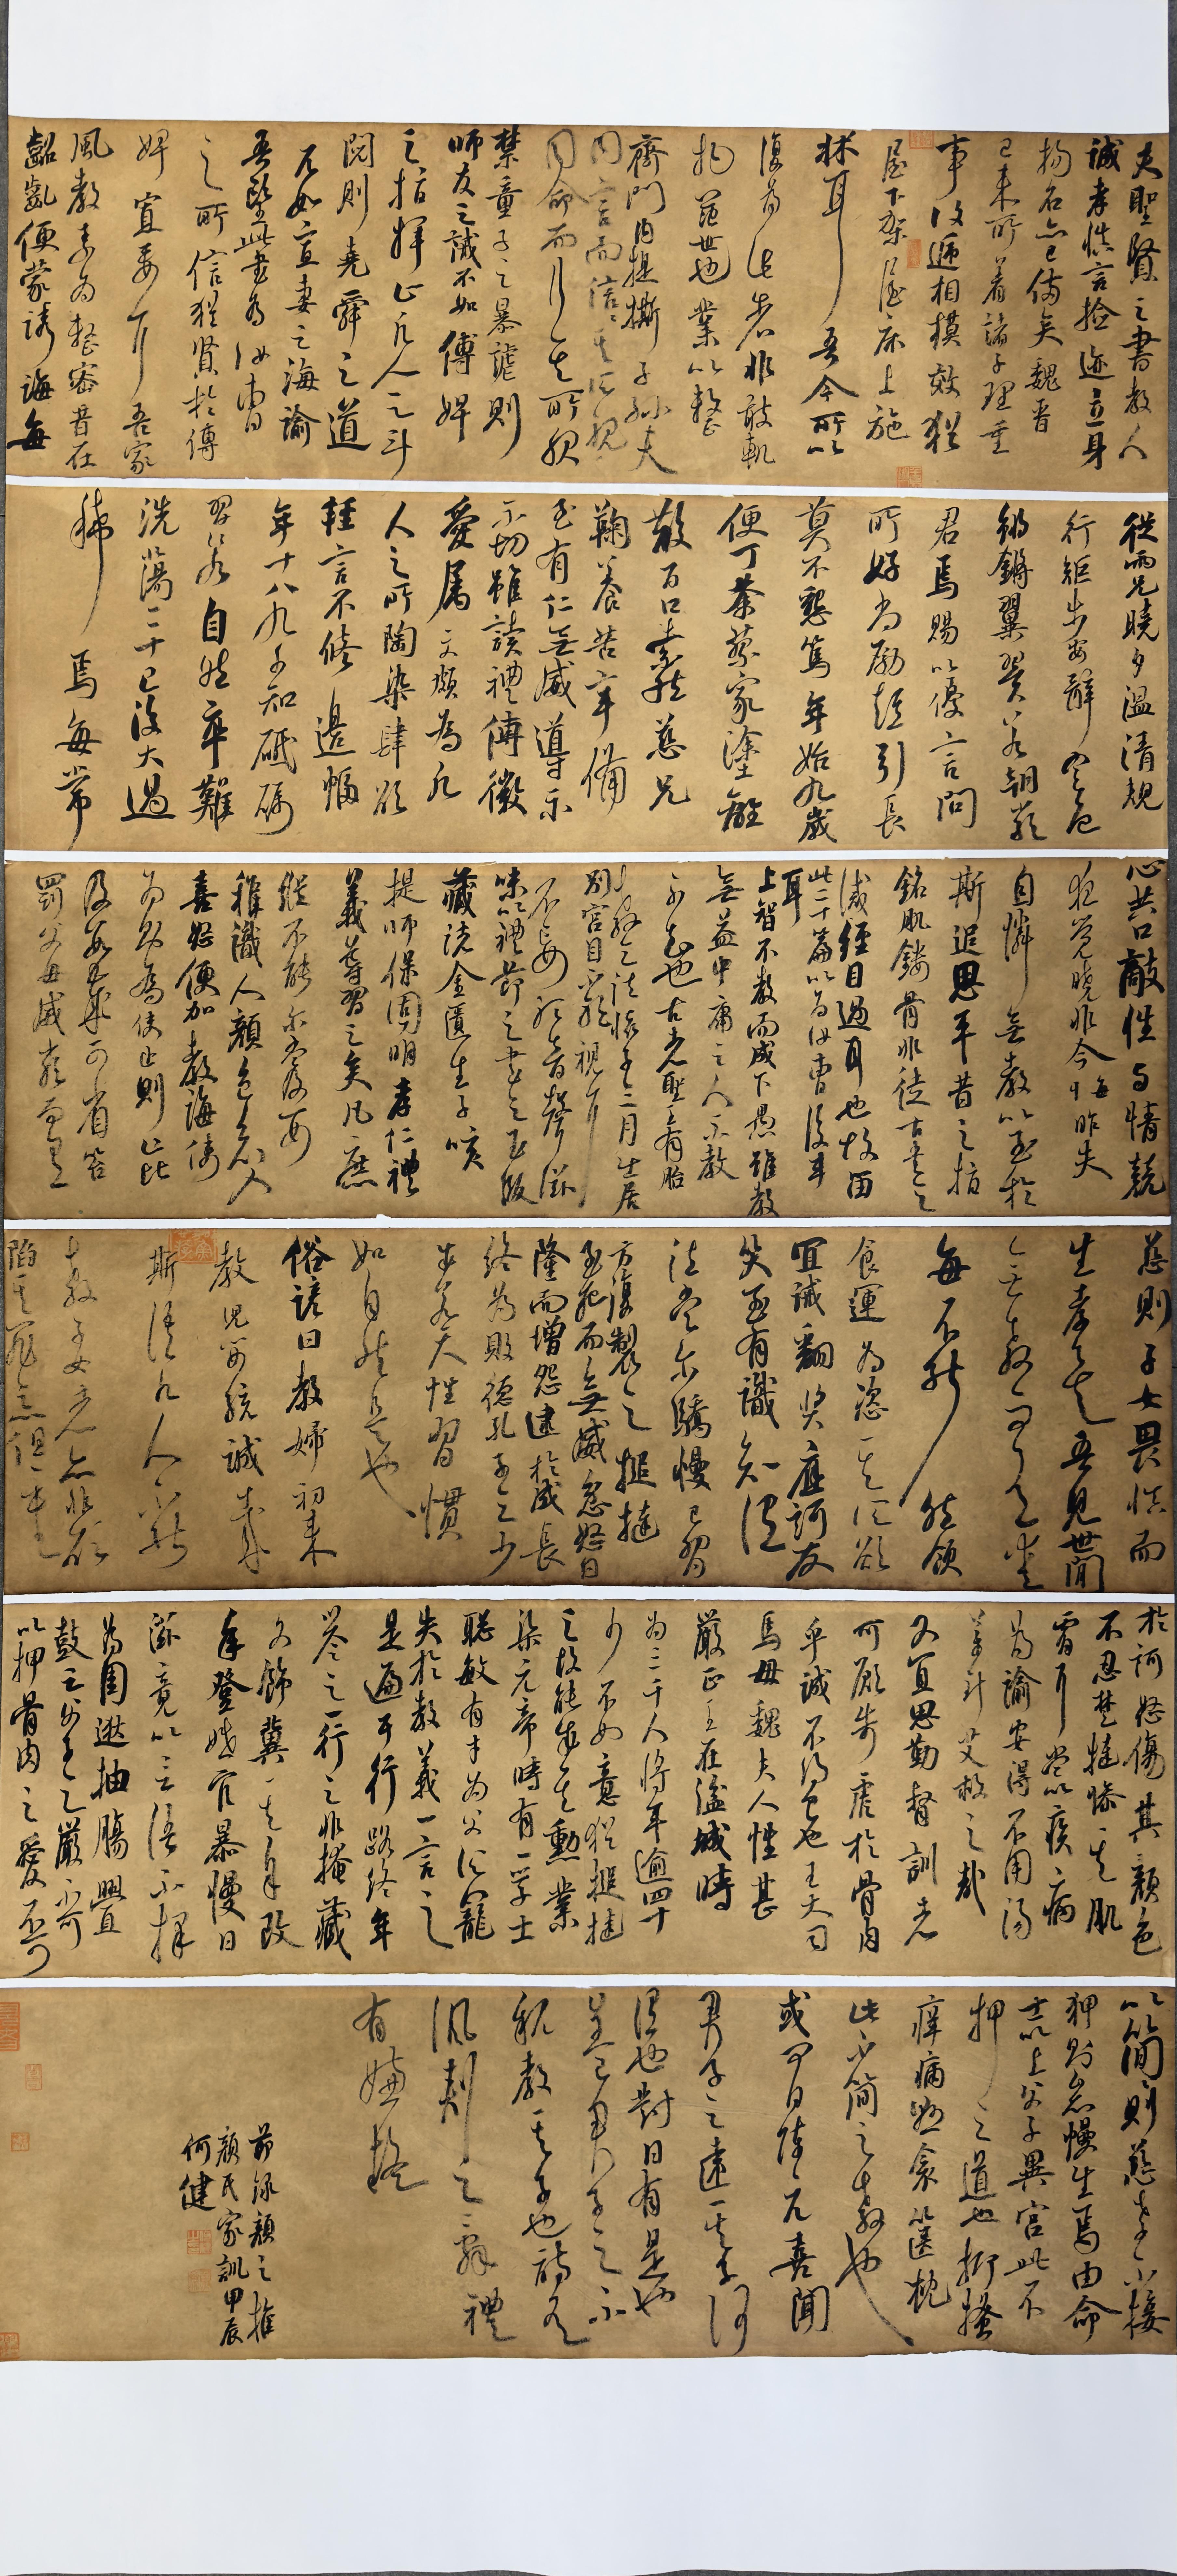 夫聖賢之書教人
誠孝慎言撿迹立身
揚名亦已俻矣魏晋
已来所着諸子理重
事複遞相模效猶
屋下架屋床上施
牀耳吾今所以
復為此者非敢軌
物範世也業以整
齊門内提撕子孫夫
同言而信信其所親
同命而行行其所服
禁童子之暴謔則
師友之誡不如傅婢
之指揮止凡人之斗
鬩則堯舜之道
不如寡妻之誨諭
吾望此書為汝曹
之所信猶賢於傅
婢寡妻耳吾家
風教素為整密昔在
齠齔便蒙誘誨每
從兩兄曉夕溫凊規
行矩步安辭定色
鏘鏘翼翼若朝嚴
君焉賜以優言問
所好尚勵短引長
莫不懇篤年始九歲
便丁荼蓼家塗離
散百口索然慈兄
鞠養苦辛備
至有仁無威導示
不切雖讀禮傳微
愛屬文頗為凡
人之所陶染肆欲
輕言不修邊幅
年十八九少知砥礪
習若自然卒難
洗蕩二十已後大過
稀焉每常
心共口敵性与情競
夜覺曉非今悔昨失
自憐無教以至於
斯追思平昔之指
銘肌鏤骨非徒古書之
誡經目過耳也故留
此二十篇以為汝曹後車
耳
上智不教而成下愚雖教
無益中庸之人不教
不知也古者聖王有胎
教之法懷子三月出居
別宮目不邪視耳
不妄聽音聲滋
味以禮節之書之玉版
藏諸金匱生子咳
提師保固明孝仁禮
義導習之矣凡庶
縱不能爾當及嬰
稚識人顏色知人
喜怒便加教誨使
為則為使止則止比
及數歲可省笞
罰父母威嚴而有
慈則子女畏慎而
生孝矣吾見世間
無教而有愛
每不能然飲
食運為恣其所欲
宜誡翻奨應訶反
笑至有識知謂
法當爾驕慢已習
方復製之捶撻
至死而無威忿怒日
隆而增怨逮於成長
終為敗德孔子云少
成若天性習慣
如自然是也
俗諺曰教婦初来
教兒嬰孩誠哉
斯語凡人不能
教子女者亦非欲
陷其罪惡但重
於訶怒傷其顏色
不忍楚撻慘其肌
膚耳當以疾病
為諭安得不用湯
藥針艾救之哉
又宜思勤督訓者
可願苛虐於骨肉
乎誠不得已也王大司
馬母魏夫人性甚
嚴正王在湓城時
為三千人將年逾四十
少不如意猶捶撻
之故能成其勳業
梁元帝時有一學士
聰敏有才為父所寵
失於教義一言之
是遍于行路終年
譽之一行之非掩藏
文飾冀其自改
年登婚宦暴慢日
滋竟以言語不擇
為周逖抽腸釁
鼓云父子之嚴不可
以狎骨肉之愛不可
以簡簡則慈孝不接
狎則怠慢生焉由命
士以上父子異宮此不
狎之道也抑搔
痒痛懸衾篋枕
此不簡之教也
或問曰陳亢喜聞
君子之遠其子何
謂也對曰有是也
蓋君子之不
親教其子也詩有
諷刺之辭禮
有嫌疑
節録顏之推
顏氏家訓甲辰
何健